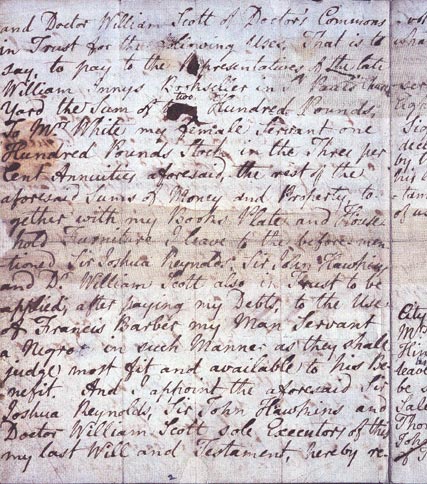 and Doctor William Scott of Doctor's Commons
in Trust for the following Uses, That is to
say, to pay to the Representatives of the late
William Innys Bookseller in St Pauls Church
Yard the Sum of two Hundred Pounds
To Mrs White my Female Servant one
Hundred Pounds Stock in the Three per
Cent Annuities aforesaid, the rest of the
aforesaid Sums of Money and Property, to-
gether with my Books Plate and House-
hold Furniture I leave to the before-men-
tioned Sir Joshua Reynolds, Sir John Hawkins
and Dr William Scott also in Trust to be
applied, after paying my Debts, to the Use
of Francis Barber my Man Servant
a Negro in such Manner as they shall
judge most fit and available to his Be-
nefit. And I appoint the aforesaid Sir
Joshua Reynolds, Sir John Hawkins and
Doctor William Scott sole Executors of this
my last Will and Testament, hereby re-
2
Sig
decl
by t
his l
tam
of us
City
Mr
leav
be s
Sale
Tho
Joh
of T